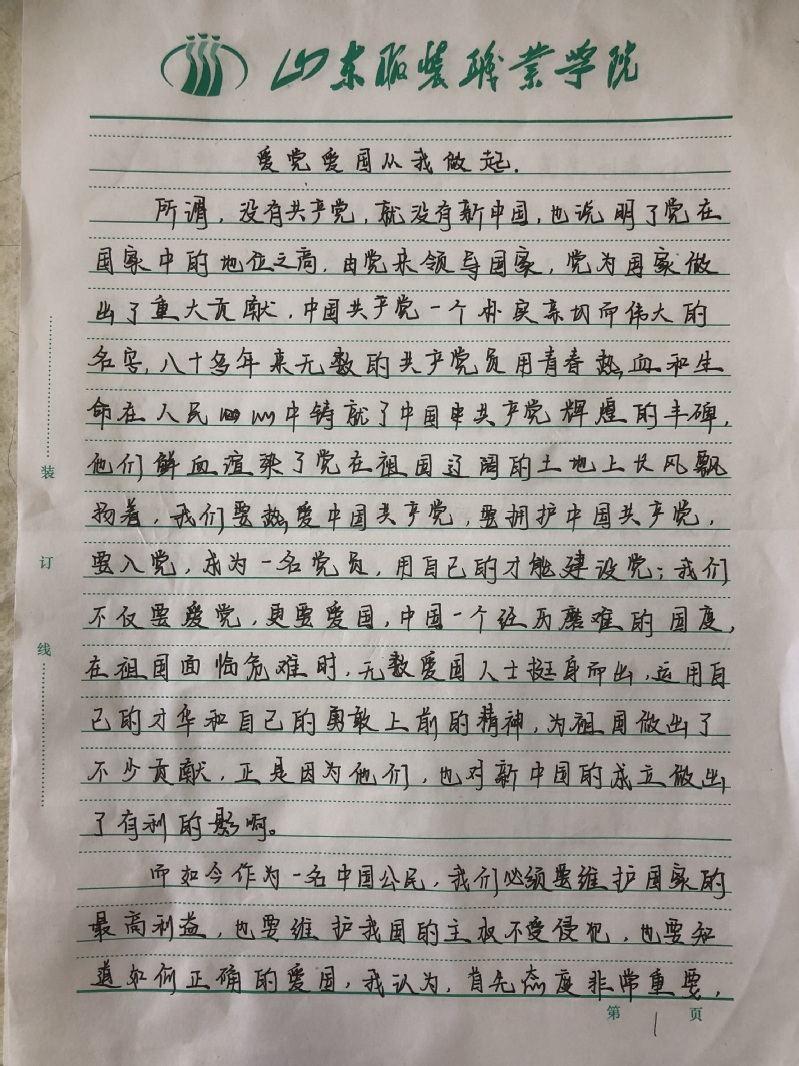 山东服装职业学院
爱党爱国从我做起.
所谓，没有共产党，就没有新中国，也说明了党在
国家中的地位之高，由党来领导国家，党为国家做
出了重大贡献，中国共产党一个朴实亲切而伟大的
名字，八十多年来无数的共产党员用青春热血和生
命在人民心中铸就了中国共产党辉煌的丰碑，
他们鲜血渲染了党在祖国辽阔的土地上长风飘
扬着，我们要热爱中国共产党，要拥护中国共产党，
要入党，成为一名党员，用自己的才能建设党；我们
不仅要爱党，更要爱国，中国一个经历磨难的国度，
在祖国面临危难时，无数爱国人士挺身而出，运用自
己的才华和自己的勇敢上前的精神，为祖国做出了
不少贡献，正是因为他们，也对新中国的成立做出
了有利的影响。
而如今作为一名中国公民，我们必须要维护国家的
最高利益，也要维护我国的主权不受侵犯，也要知
道如何正确的爱国，我认为，首先态度非常重要，
装
订
线
第 1 页